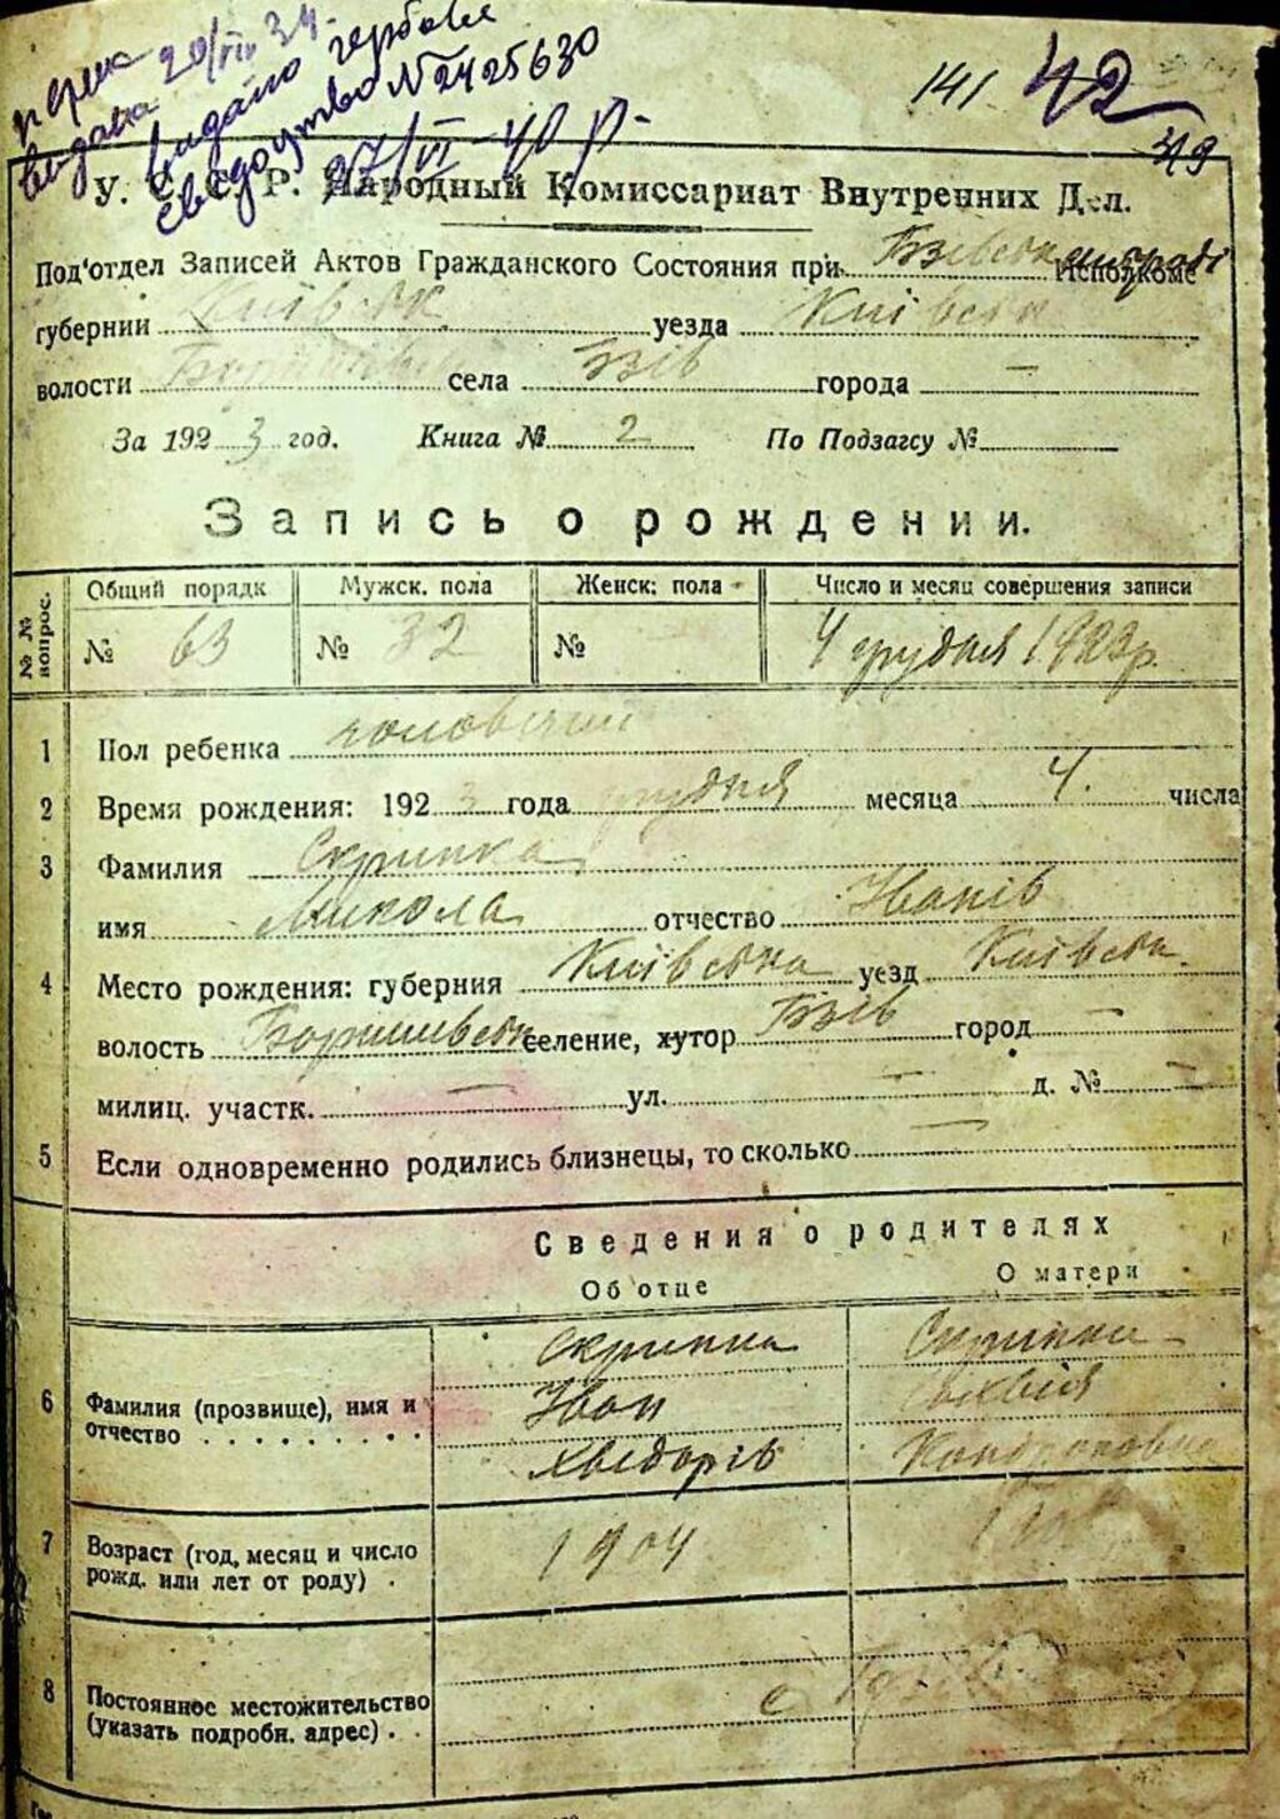 видана 20/VII 34.
видано гербове
свидоцтво № 2425630
27/VI - 40 р.
141 42
У. С. С. Р. Народный Комиссариат Внутренних Дел.
Под'отдел Записей Актов Гражданского Состояния при Исполкоме
губернии Київськ. уезда Київськ
волости села Бзів города —
За 1923 год. Книга № 2 По Подзагсу №
Запись о рождении.
№ № вопрос. Общий порядк Мужск. пола Женск. пола Число и месяц совершения записи
№ 63 № 32 № 4 грудня 1923 р.
1 Пол ребенка чоловічий
2 Время рождения: 1923 года грудня месяца 4. числа
3 Фамилия Скрипка
имя Микола отчество Іванів
4 Место рождения: губерния Київська уезд Київськ.
волость селение, хутор Бзів город —
милиц. участк. — ул. — д. № —
5 Если одновременно родились близнецы, то сколько —
Сведения о родителях
Об отце О матери
6 Фамилия (прозвище), имя и отчество
Скрипка Скрипка
Іван
Хведорів
7 Возраст (год, месяц и число рожд. или лет от роду)
1904
8 Постоянное местожительство (указать подробн. адрес)
с